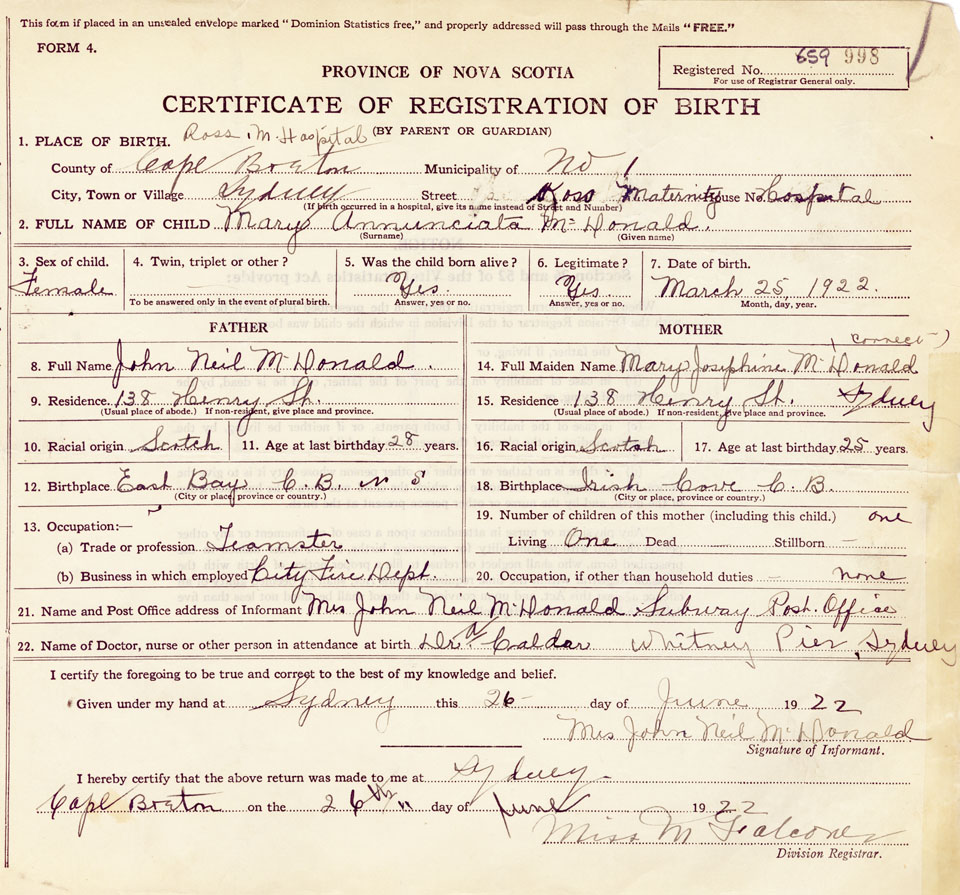 This form if placed in an unsealed envelope marked "Dominion Statistics free," and properly addressed will pass through the Mails "FREE."
FORM 4.
Registered No. 659 998
For use of Registrar General only.
PROVINCE OF NOVA SCOTIA
CERTIFICATE OF REGISTRATION OF BIRTH
(BY PARENT OR GUARDIAN)
1. PLACE OF BIRTH. Ross M. Hospital
County of Cape Breton Municipality of No 1
City, Town or Village Sydney Street Ross Maternity House No. Hospital
(If birth occurred in a hospital, give its name instead of Street and Number)
2. FULL NAME OF CHILD Mary Annunciata McDonald.
(Surname) (Given name)
3. Sex of child. 4. Twin, triplet or other? 5. Was the child born alive? 6. Legitimate? 7. Date of birth.
Female — Yes. Yes. March 25, 1922.
To be answered only in the event of plural birth. Answer, yes or no. Answer, yes or no. Month, day, year.
FATHER
8. Full Name John Neil McDonald.
9. Residence. 138 Henry St.
(Usual place of abode.) If non-resident, give place and province.
10. Racial origin Scotch 11. Age at last birthday 28 years.
12. Birthplace East Bay C.B. N S
(City or place, province or country.)
13. Occupation:—
(a) Trade or profession Teamster
(b) Business in which employed City Fire Dept.
MOTHER
(correct)
14. Full Maiden Name Mary Josephine McDonald
15. Residence 138 Henry St. Sydney
(Usual place of abode.) If non-resident, give place and province.
16. Racial origin Scotch 17. Age at last birthday 25 years.
18. Birthplace Irish Cove C.B.
(City or place, province or country.)
19. Number of children of this mother (including this child.) one
Living One Dead Stillborn —
20. Occupation, if other than household duties - none
21. Name and Post Office address of Informant Mrs John Neil McDonald Subway Post. Office
22. Name of Doctor, nurse or other person in attendance at birth Dr. A Calder Whitney Pier, Sydney
I certify the foregoing to be true and correct to the best of my knowledge and belief.
Given under my hand at Sydney this 26- day of June 1922
Mrs John Neil McDonald
Signature of Informant.
I hereby certify that the above return was made to me at Sydney.
Cape Breton on the 26th day of June 1922
Miss M Falconer
Division Registrar.